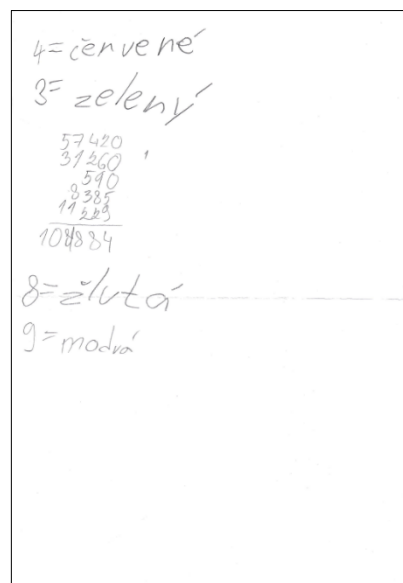 4=červené
3=zelený
57420
31260
590
8385
11229
108884
8=žlutá
9=modrá